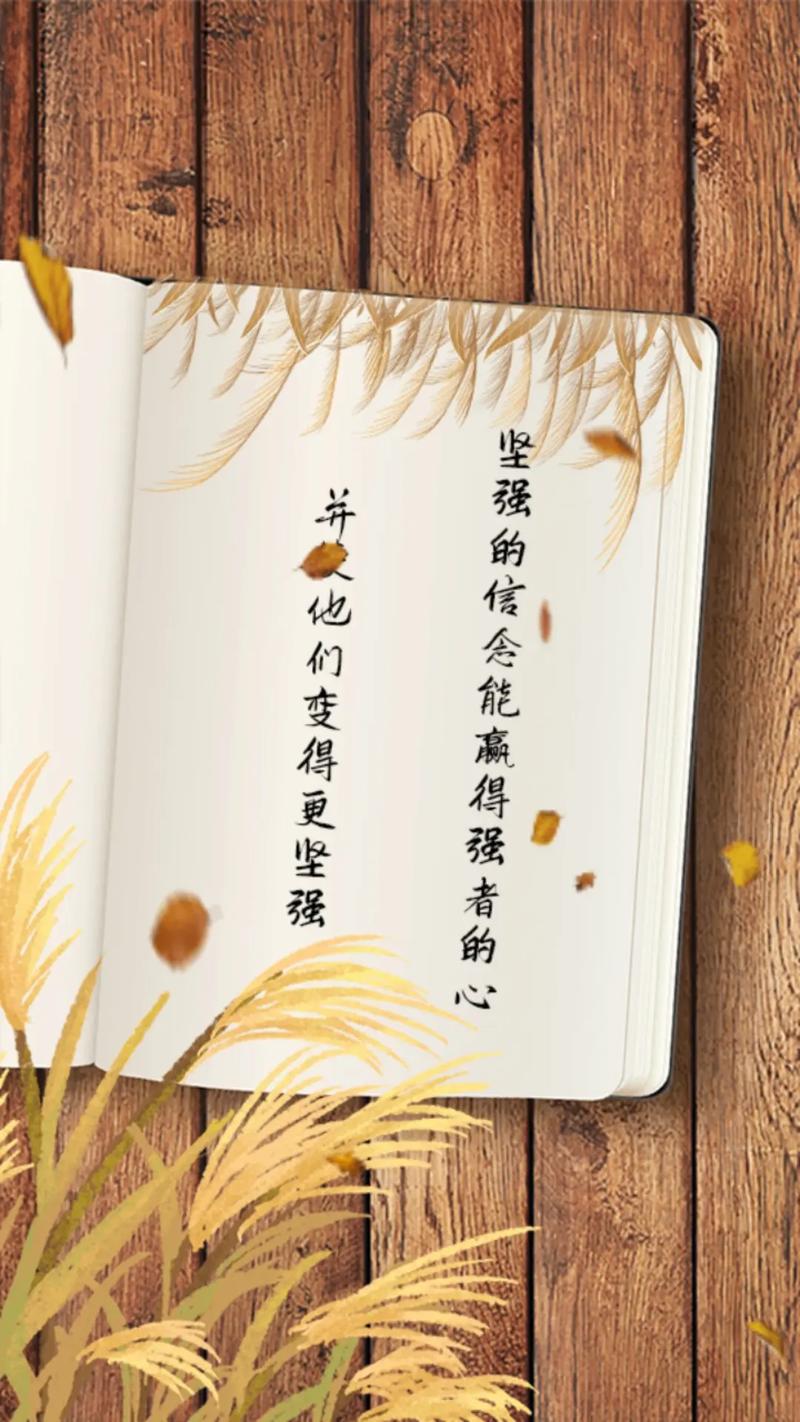 坚强的信念能赢得强者的心
并他们变得更坚强